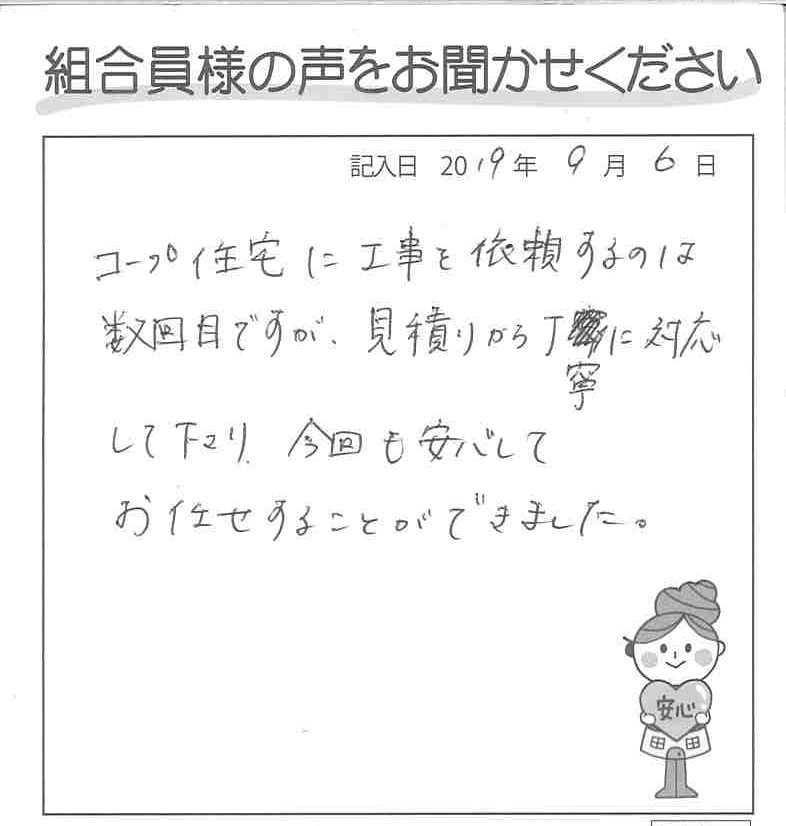 組合員様の声をお聞かせください
記入日 2019年 9月 6日
コープ住宅に工事を依頼するのは
数回目ですが、見積りから丁寧に対応
して下さり、今回も安心して
お任せすることができました。
安心